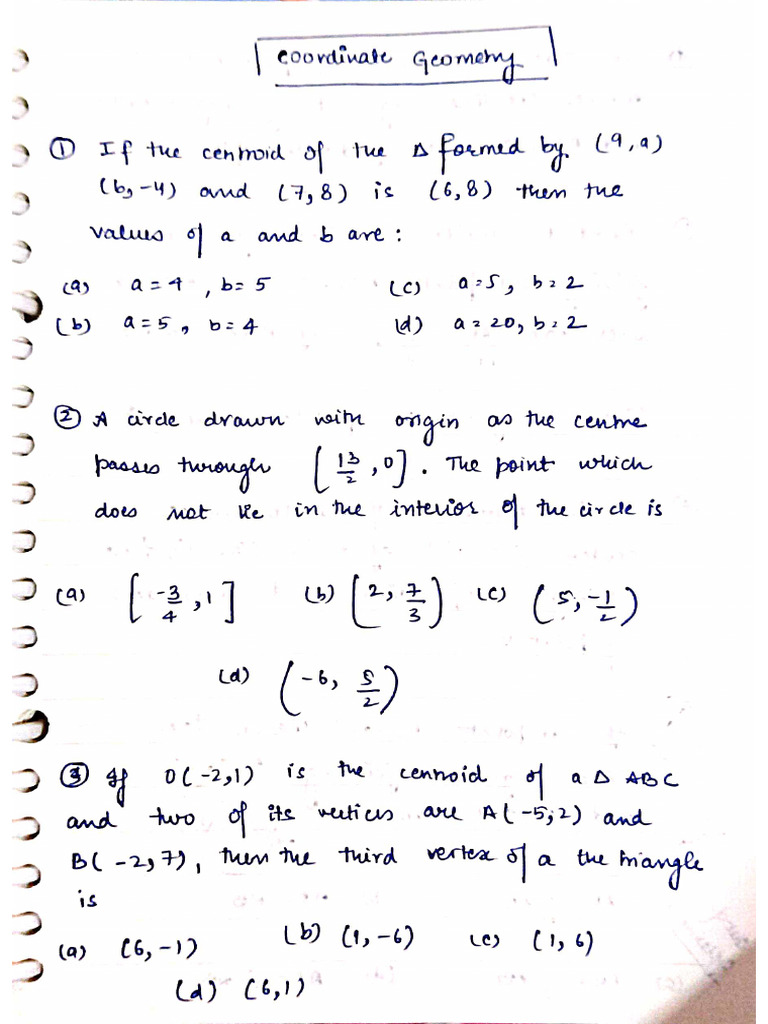 Coordinate Geometry
① If the centroid of the Δ formed by (9, a)
(b, -4) and (7, 8) is (6, 8) then the
values of a and b are :
(a) a = 4 , b = 5 (c) a = 5, b = 2
(b) a = 5, b = 4 (d) a = 20, b = 2
② A circle drawn with origin as the centre
passes through [13/2, 0]. The point which
does not lie in the interior of the circle is
(a) [-3/4, 1] (b) (2, 7/3) (c) (5, -1/2)
(d) (-6, 5/2)
③ If O(-2,1) is the centroid of a Δ ABC
and two of its vertices are A(-5,2) and
B(-2,7), then the third vertex of a the triangle
is
(a) (6, -1) (b) (1, -6) (c) (1, 6)
(d) (6,1)